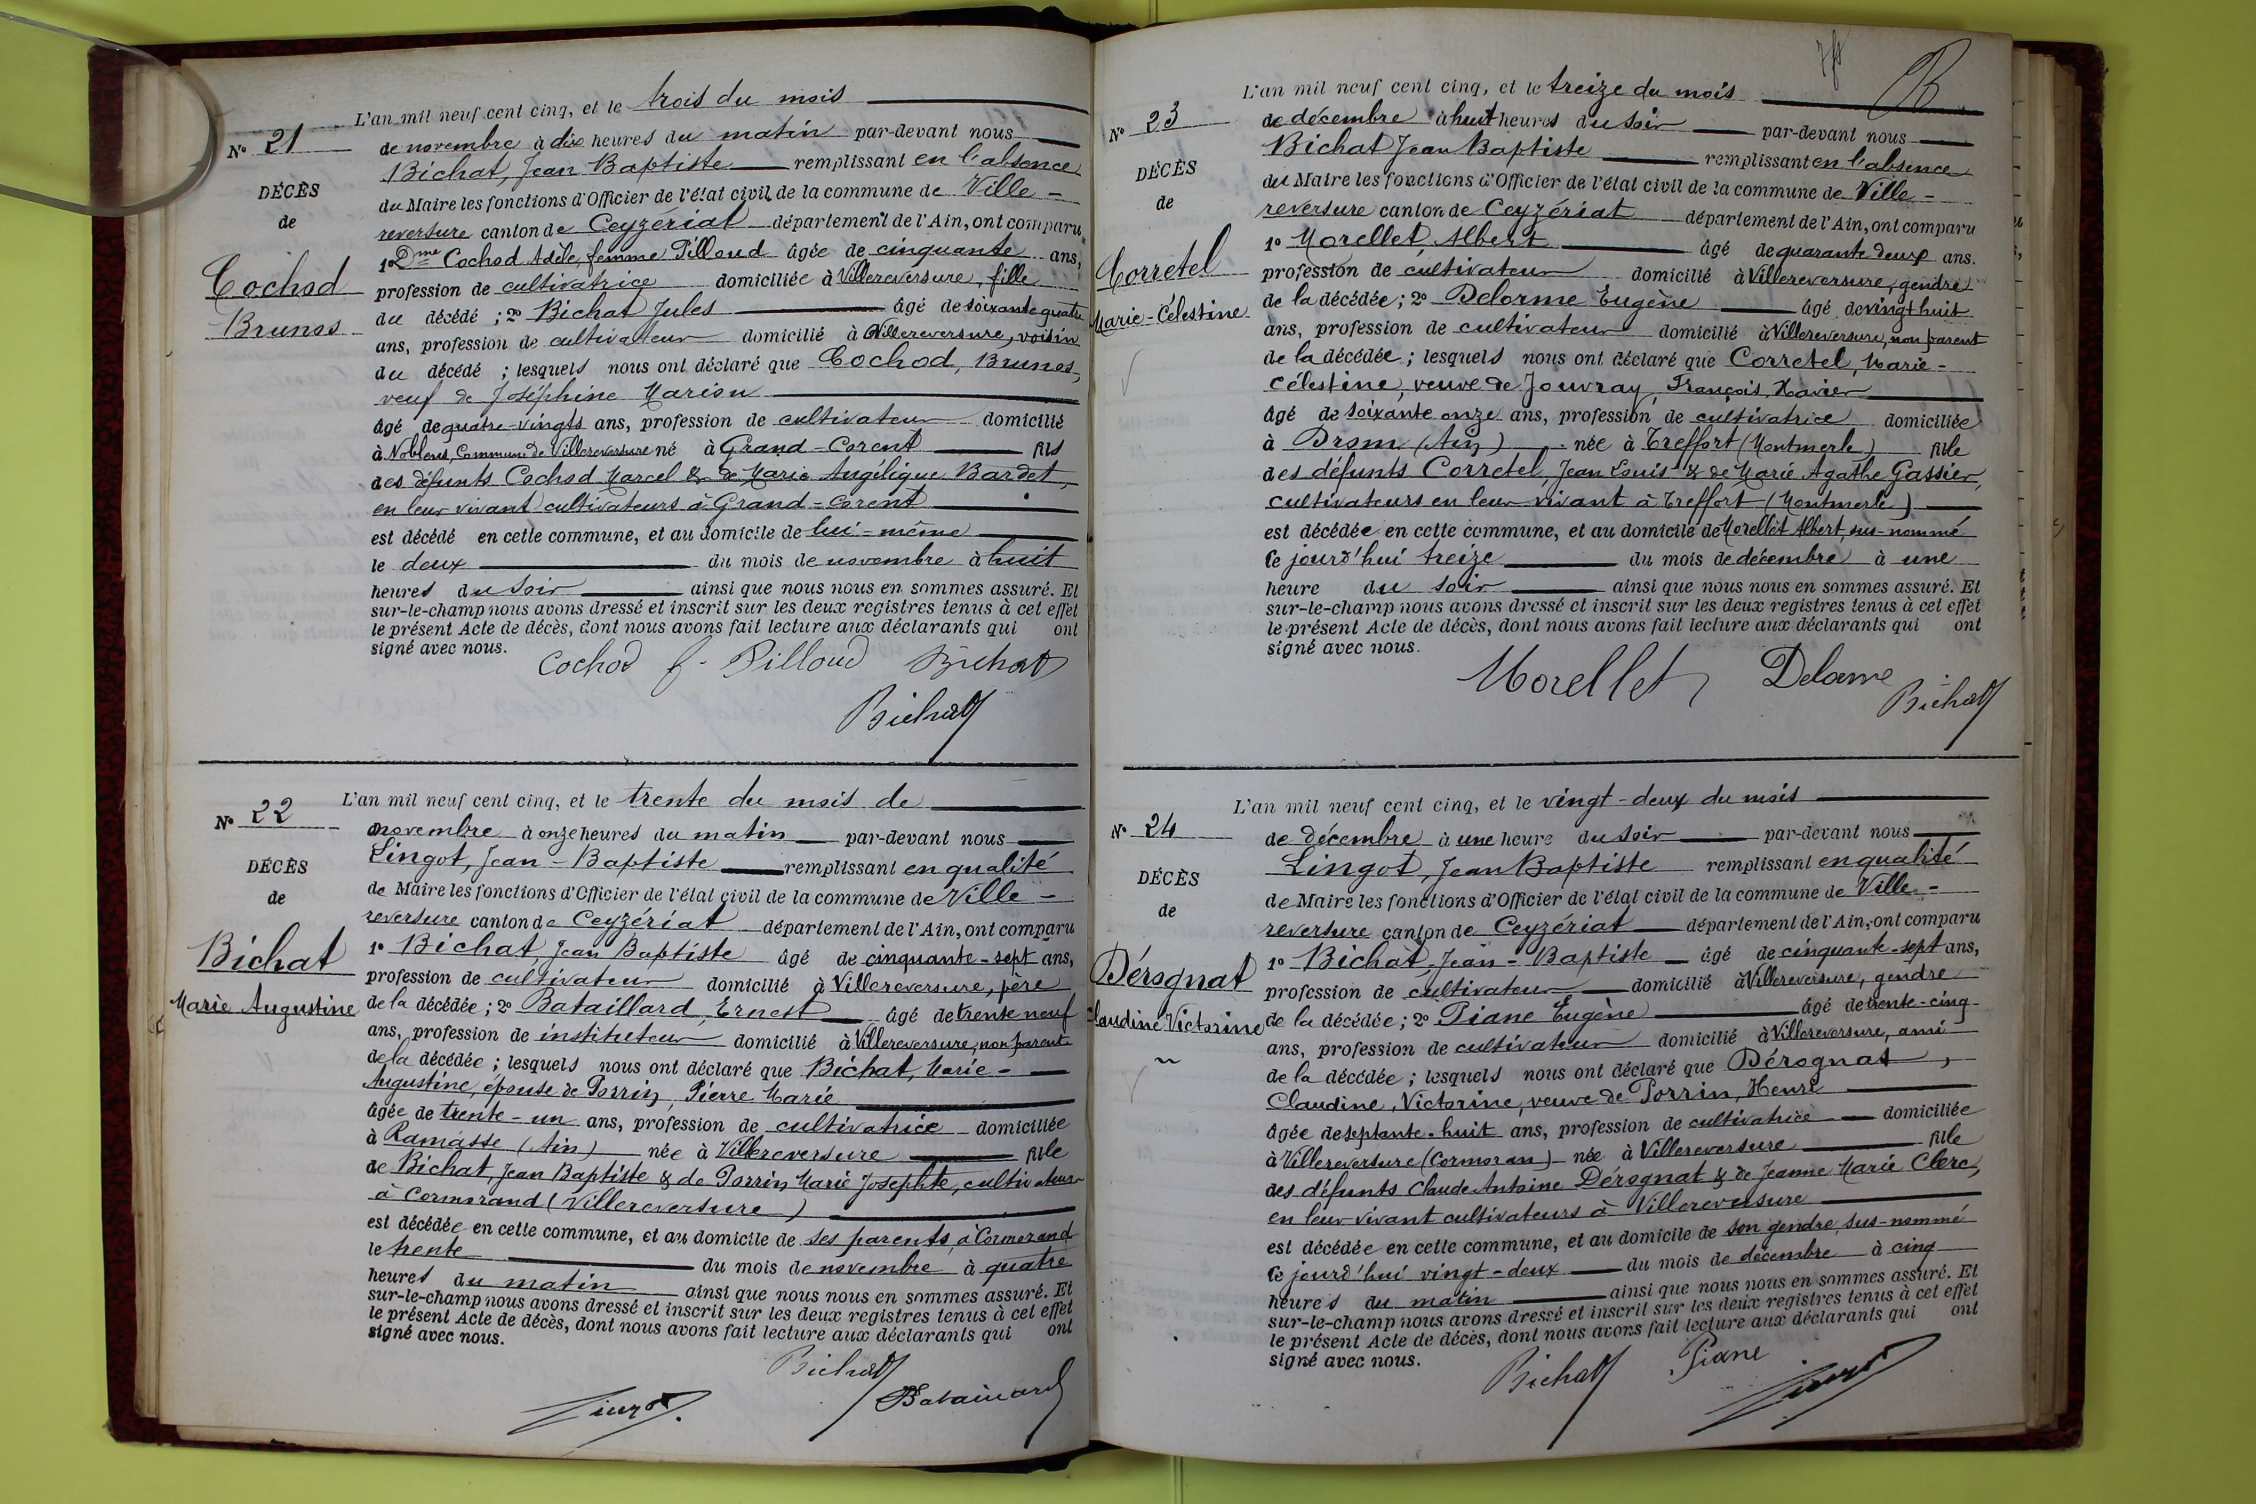 L'an mil neuf cent cinq, et le trois du mois
N° 21
de novembre à dix heures du matin par-devant nous
Bichat, Jean Baptiste remplissant en l'absence
DÉCÈS
du Maire les fonctions d'Officier de l'état civil de la commune de Ville-
de
reversure canton de Ceyzériat département de l'Ain, ont comparu
1° Dme Cochod Adèle, femme Pilloud âgée de cinquante ans,
Cochod
profession de cultivatrice domiciliée à Villereversure, fille
Brunos
du décédé ; 2° Bichat Jules âgé de soixante quatre
ans, profession de cultivateur domicilié à Villereversure, voisin
du décédé ; lesquels nous ont déclaré que Cochod, Brunos,
veuf de Joséphine Marion
âgé de quatre-vingts ans, profession de cultivateur domicilié
à Noblens, Commune de Villereversure né à Grand-Corent fils
des défunts Cochod Marcel & de Marie Angélique Bardet,
en leur vivant cultivateurs à Grand-Corent
est décédé en cette commune, et au domicile de lui-même
le deux du mois de novembre à huit
heures du soir ainsi que nous nous en sommes assuré. Et
sur-le-champ nous avons dressé et inscrit sur les deux registres tenus à cet effet
le présent Acte de décès, dont nous avons fait lecture aux déclarants qui ont
signé avec nous.
Cochod f. Pilloud Bichat
Bichat
L'an mil neuf cent cinq, et le trente du mois de
N° 22
novembre à onze heures du matin par-devant nous
Lingot, Jean-Baptiste remplissant en qualité
DÉCÈS
de Maire les fonctions d'Officier de l'état civil de la commune de Ville-
de
reversure canton de Ceyzériat département de l'Ain, ont comparu
1° Bichat, Jean Baptiste âgé de cinquante-sept ans,
Bichat
profession de cultivateur domicilié à Villereversure, père
Marie Augustine
de la décédée ; 2° Bataillard, Ernest âgé de trente neuf
ans, profession de instituteur domicilié à Villereversure, non parent
de la décédée ; lesquels nous ont déclaré que Bichat, Marie-
Augustine, épouse de Porrin, Pierre Marie
âgée de trente-un ans, profession de cultivatrice domiciliée
à Ramasse (Ain) née à Villereversure fille
de Bichat, Jean Baptiste & de Porrin Marie Josephte, cultivateurs
à Cormorand (Villereversure)
est décédée en cette commune, et au domicile de ses parents, à Cormorand
le trente du mois de novembre à quatre
heures du matin ainsi que nous nous en sommes assuré. Et
sur-le-champ nous avons dressé et inscrit sur les deux registres tenus à cet effet
le présent Acte de décès, dont nous avons fait lecture aux déclarants qui ont
signé avec nous.
Bichat
Lingot Bataillard
L'an mil neuf cent cinq, et le treize du mois
N° 23
de décembre à huit heures du soir par-devant nous
Bichat Jean Baptiste remplissant en l'absence
DÉCÈS
du Maire les fonctions d'Officier de l'état civil de la commune de Ville-
de
reversure canton de Ceyzériat département de l'Ain, ont comparu
1° Morellet, Albert âgé de quarante deux ans.
Corretel
profession de cultivateur domicilié à Villereversure, gendre
Marie-Célestine
de la décédée ; 2° Delorme Eugène âgé de vingt huit
ans, profession de cultivateur domicilié à Villereversure, non parent
de la décédée ; lesquels nous ont déclaré que Corretel, Marie-
Célestine, veuve de Jouvray, François, Xavier
âgé de soixante onze ans, profession de cultivatrice domiciliée
à Drom (Ain) née à Treffort (Montmerle) fille
des défunts Corretel, Jean Louis & de Marie Agathe Gassier,
cultivateurs en leur vivant à Treffort (Montmerle)
est décédée en cette commune, et au domicile de Morellet Albert, sus-nommé
Ce jourd'hui treize du mois de décembre à une
heure du soir ainsi que nous nous en sommes assuré. Et
sur-le-champ nous avons dressé et inscrit sur les deux registres tenus à cet effet
le présent Acte de décès, dont nous avons fait lecture aux déclarants qui ont
signé avec nous.
Morellet Delorme
Bichat
L'an mil neuf cent cinq, et le vingt-deux du mois
N° 24
de décembre à une heure du soir par-devant nous
Lingot, Jean Baptiste remplissant en qualité
DÉCÈS
de Maire les fonctions d'Officier de l'état civil de la commune de Ville-
de
reversure canton de Ceyzériat département de l'Ain, ont comparu
1° Bichat, Jean-Baptiste âgé de cinquante-sept ans,
Dérognat
profession de cultivateur domicilié à Villereversure, gendre
Claudine Victorine
de la décédée ; 2° Piane Eugène âgé de trente-cinq
ans, profession de cultivateur domicilié à Villereversure, ami
de la décédée ; lesquels nous ont déclaré que Dérognat,
Claudine, Victorine, veuve de Porrin, Henri
âgée de septante-huit ans, profession de cultivatrice domiciliée
à Villereversure (Cormoran) née à Villereversure fille
des défunts Claude Antoine Dérognat & de Jeanne Marie Clerc,
en leur vivant cultivateurs à Villereversure
est décédée en cette commune, et au domicile de son gendre, sus-nommé
Ce jourd'hui vingt-deux du mois de décembre à cinq
heures du matin ainsi que nous nous en sommes assuré. Et
sur-le-champ nous avons dressé et inscrit sur les deux registres tenus à cet effet
le présent Acte de décès, dont nous avons fait lecture aux déclarants qui ont
signé avec nous.
Bichat Piane Lingot